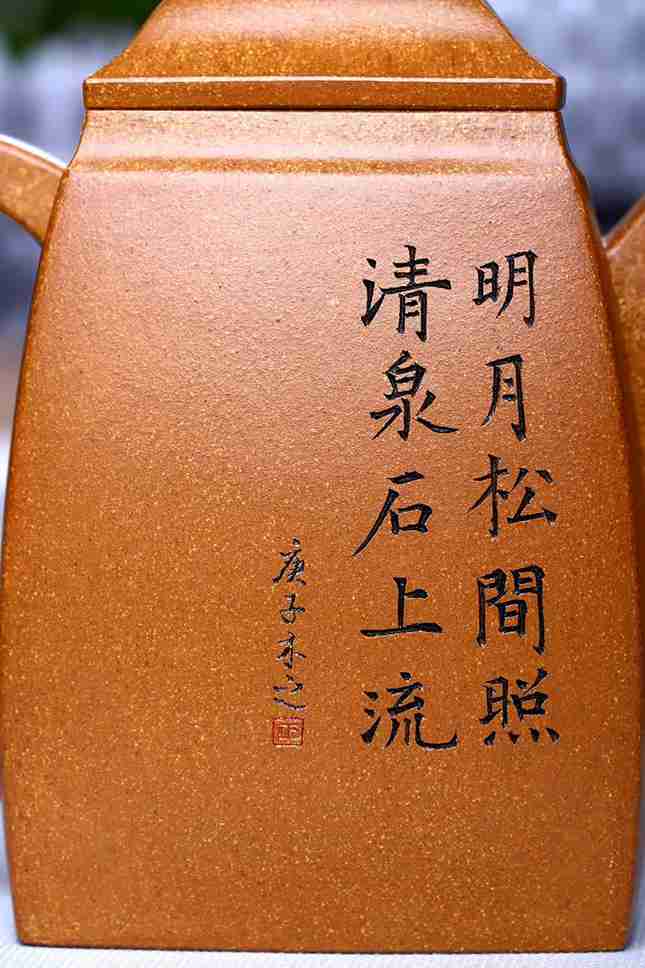 明月松間照
清泉石上流
庚子木之